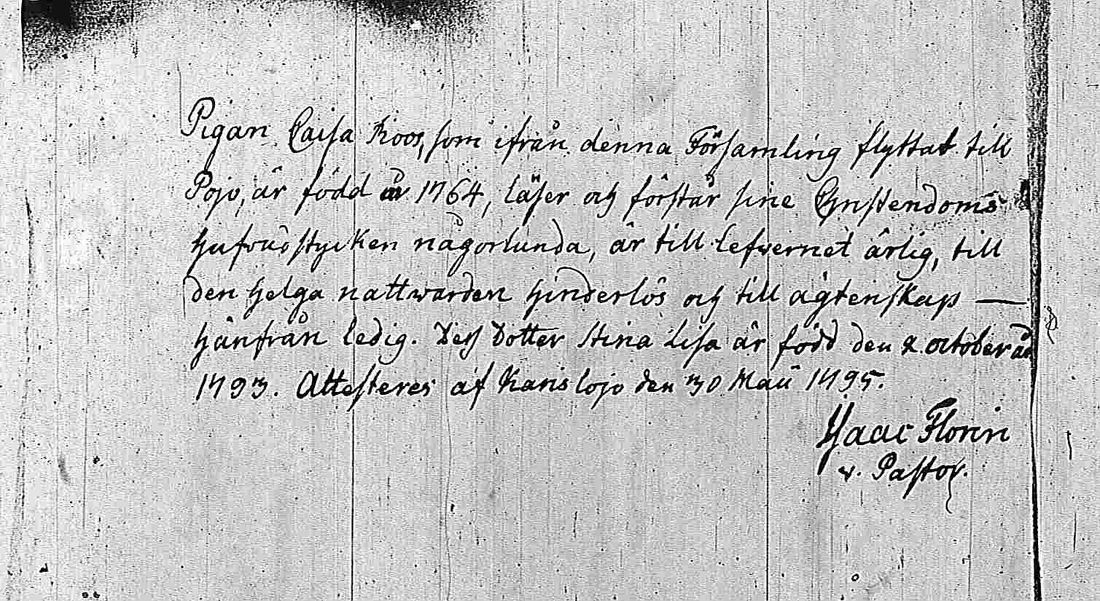 Pigan Caisa Roos, som ifrån denna Församling flyttat till
Pojo, är född år 1764, läser och förstår sine Christendoms
hufvudstycken någorlunda, är till lefvernet ärlig, till
den helga nattwarden hinderlös och till ägtenskap —
härifrån ledig. Dess Dotter Stina Lisa är född den 2 october år
1793. Attesteres af Karislojo den 30 Maii 1795.
Isaac Florin
v. Pastor.